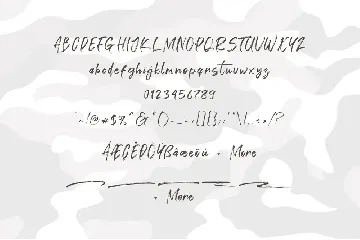 ABCDEFGHIJKLMNOPQRSTUVWXYZ
abcdefghijklmnopqrstuvwxyz
0123456789
ÆÇÈÐØÝßáæèöú + More
+ More